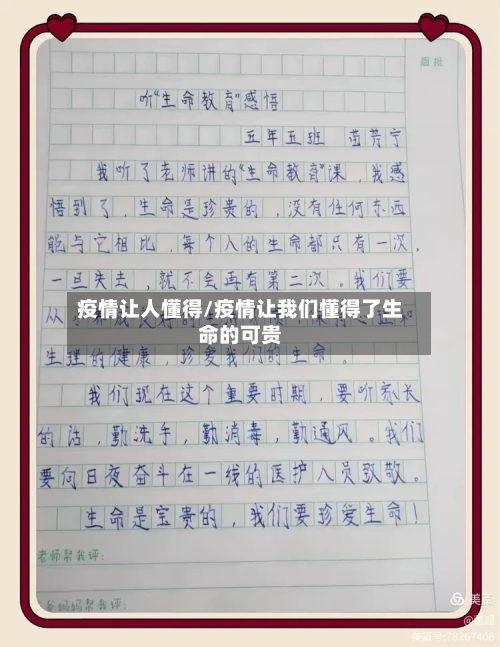 眉批
听“生命教育”感悟
五年五班 苗芳宁
我听了老师讲的“生命教育”课，我感
悟到了，生命是珍贵的，没有任何东西
能与它相比，每个人的生命都只有一次，
一旦失去，就不会再有第二次。我们要
疫情让人懂得/疫情让我们懂得了生
命的可贵
从
生理的健康，珍爱我们的生命。
我们现在这个重要时期，要听家长
的话，勤洗手，勤消毒，勤通风。我们
要向日夜奋斗在一线的医护人员致敬。
生命是宝贵的，我们要珍爱生命！
老师帮我评：
爸妈妈帮我评：
美篇
美篇号:78267408